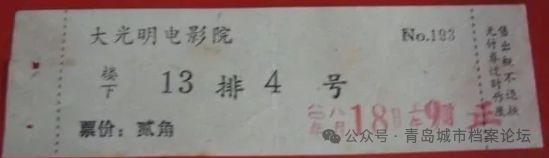 大光明电影院
No.193
楼下 13 排 4 号
票价：贰角
八月 18日 9
售出概不退换
无付券过时作废
公众号 · 青岛城市档案论坛